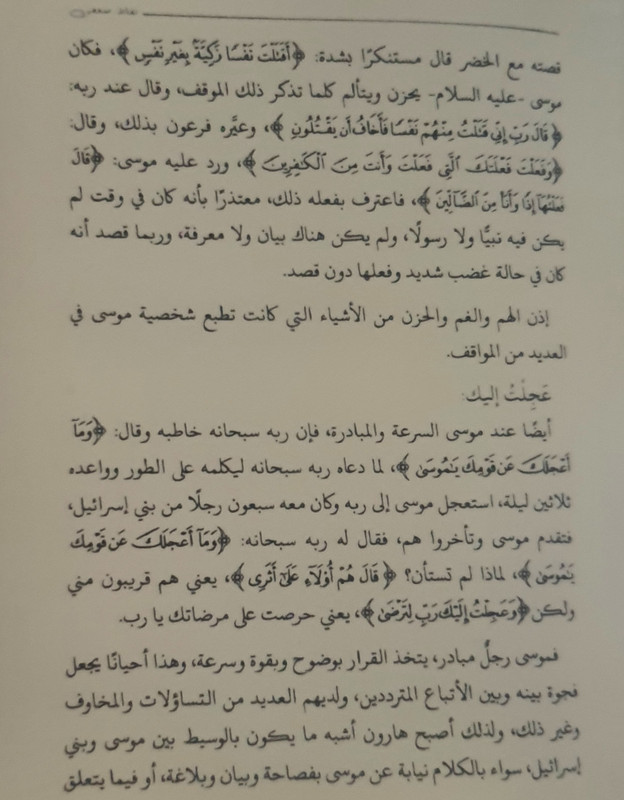 قصته مع الخضر قال مستنكرًا بشدة: ﴿أَقَتَلْتَ نَفْسًا زَكِيَّةً بِغَيْرِ نَفْسٍ﴾، فكان
موسى -عليه السلام- يحزن ويتألم كلما تذكر ذلك الموقف، وقال عند ربه:
﴿قَالَ رَبِّ إِنِّي قَتَلْتُ مِنْهُمْ نَفْسًا فَأَخَافُ أَن يَقْتُلُونِ﴾، وعيَّره فرعون بذلك، وقال:
﴿وَفَعَلْتَ فَعْلَتَكَ الَّتِي فَعَلْتَ وَأَنتَ مِنَ الْكَافِرِينَ﴾، ورد عليه موسى: ﴿قَالَ
فَعَلْتُهَا إِذًا وَأَنَا مِنَ الضَّالِّينَ﴾، فاعترف بفعله ذلك، معتذرًا بأنه كان في وقت لم
يكن فيه نبيًّا ولا رسولًا، ولم يكن هناك بيان ولا معرفة، وربما قصد أنه
كان في حالة غضب شديد وفعلها دون قصد.
إذن الهم والغم والحزن من الأشياء التي كانت تطبع شخصية موسى في
العديد من المواقف.
عَجِلْتُ إليك:
أيضًا عند موسى السرعة والمبادرة، فإن ربه سبحانه خاطبه وقال: ﴿وَمَآ
أَعْجَلَكَ عَن قَوْمِكَ يَٰمُوسَىٰ﴾، لما دعاه ربه سبحانه ليكلمه على الطور وواعده
ثلاثين ليلة، استعجل موسى إلى ربه وكان معه سبعون رجلًا من بني إسرائيل،
فتقدم موسى وتأخروا هم، فقال له ربه سبحانه: ﴿وَمَآ أَعْجَلَكَ عَن قَوْمِكَ
يَٰمُوسَىٰ﴾، لماذا لم تستأن؟ ﴿قَالَ هُمْ أُوْلَآءِ عَلَىٰٓ أَثَرِي﴾، يعني هم قريبون مني
ولكن ﴿وَعَجِلْتُ إِلَيْكَ رَبِّ لِتَرْضَىٰ﴾، يعني حرصت على مرضاتك يا رب.
فموسى رجلٌ مبادر، يتخذ القرار بوضوح وبقوة وسرعة، وهذا أحيانًا يجعل
فجوة بينه وبين الأتباع المترددين، ولديهم العديد من التساؤلات والمخاوف
وغير ذلك، ولذلك أصبح هارون أشبه ما يكون بالوسيط بين موسى وبني
إسرائيل، سواء بالكلام نيابة عن موسى بفصاحة وبيان وبلاغة، أو فيما يتعلق